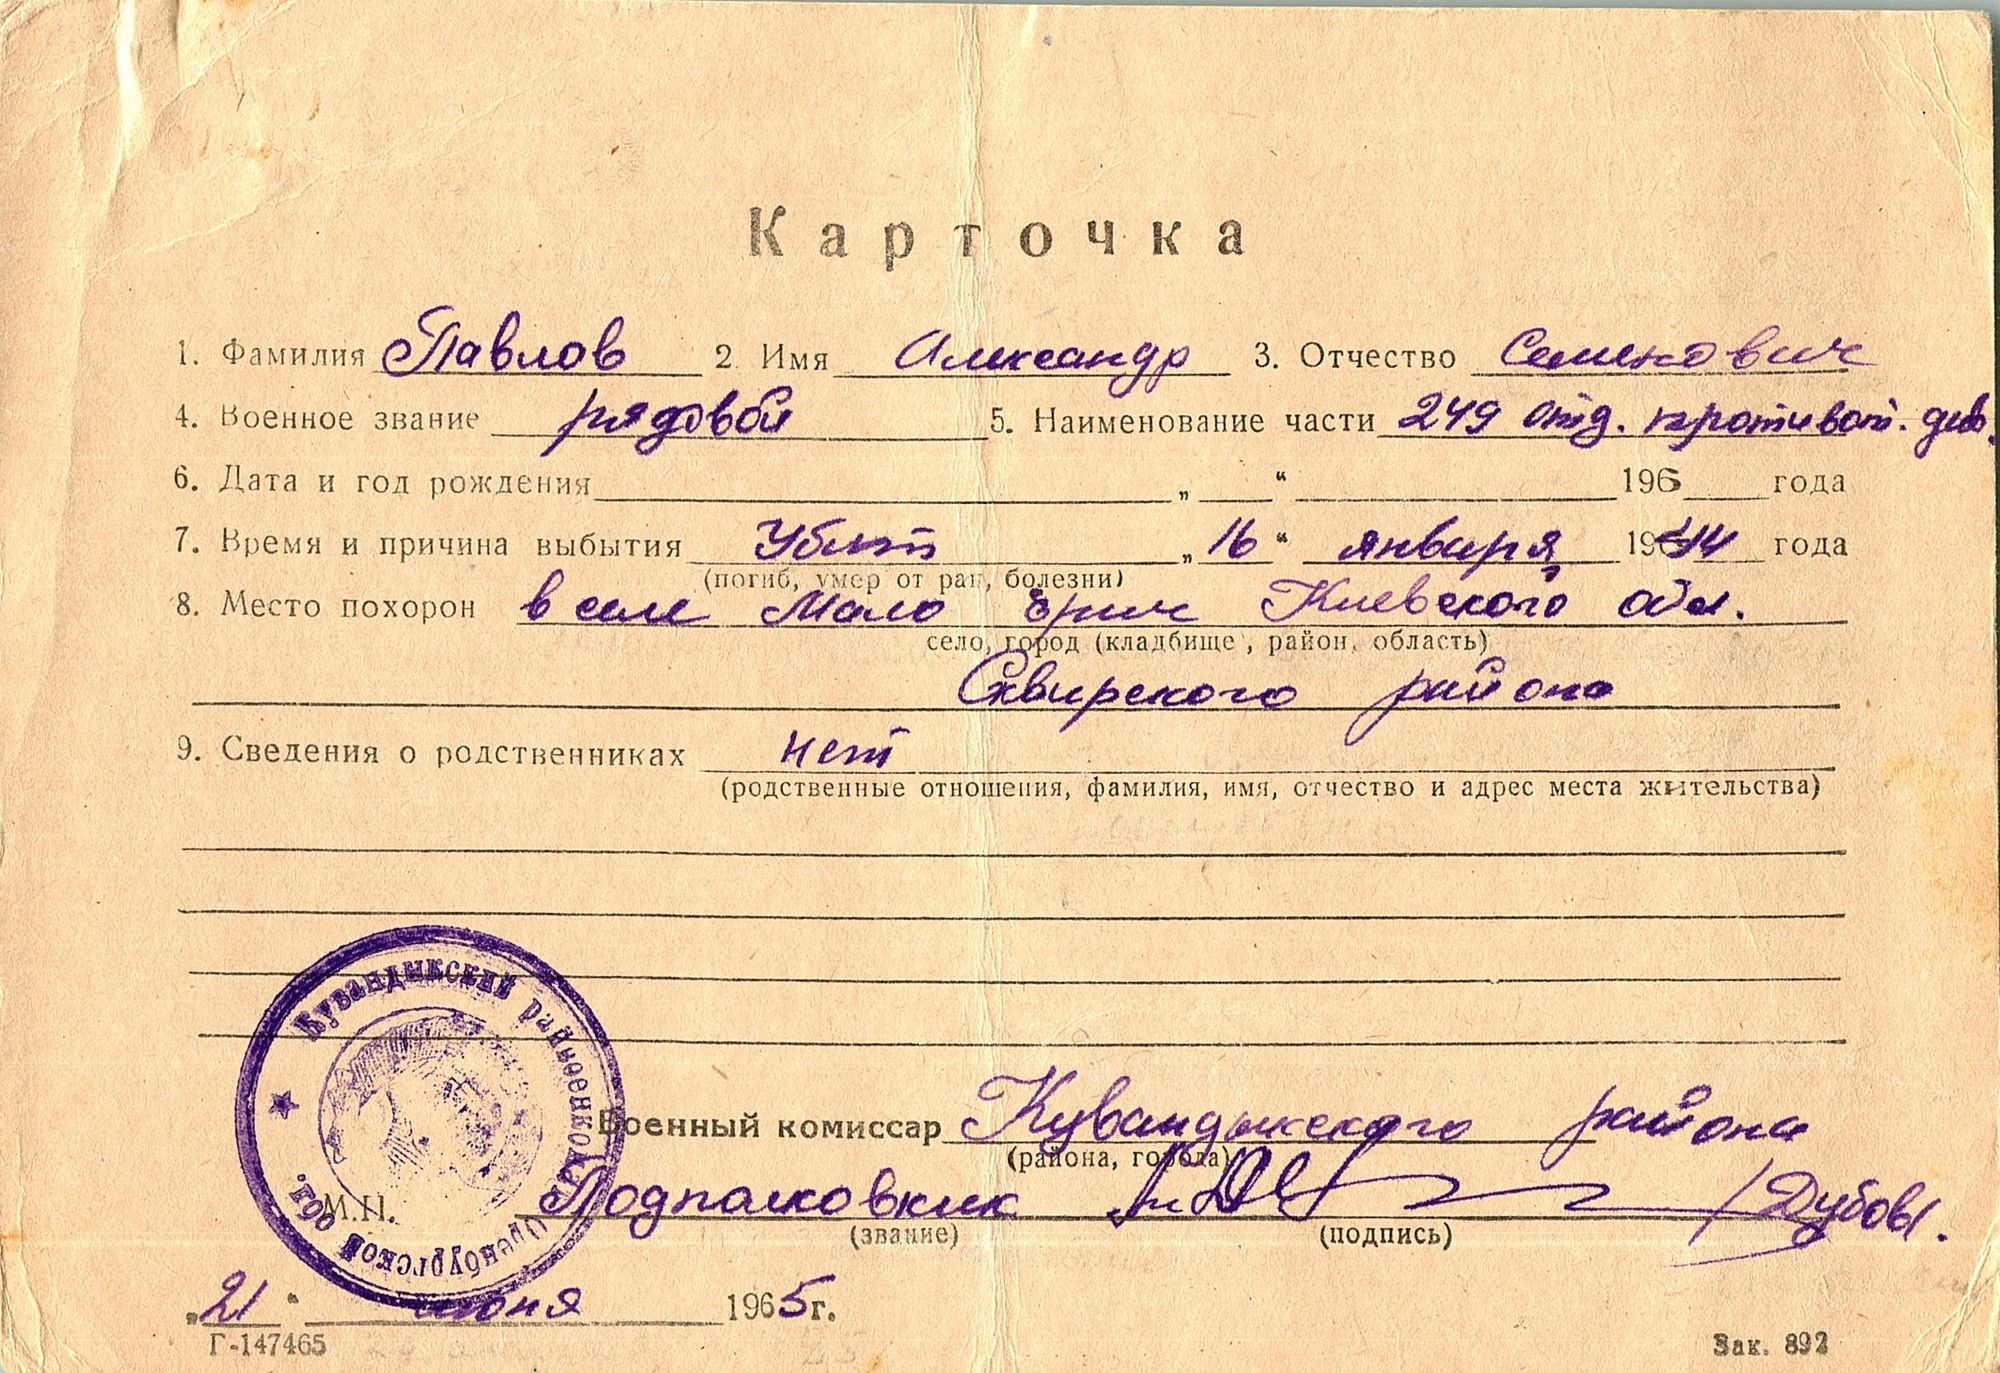 Карточка
1. Фамилия Павлов 2 Имя Александр 3. Отчество Семенович
4. Военное звание рядовой 5. Наименование части 249 отд. противот. див.
6. Дата и год рождения „ “ 196 года
7. Время и причина выбытия Убит „16“ января 1944 года
(погиб, умер от ран, болезни)
8. Место похорон в селе Мало Ерик Киевского обл.
село, город (кладбище, район, область)
Сквирского района
9. Сведения о родственниках нет
(родственные отношения, фамилия, имя, отчество и адрес места жительства)
Военный комиссар Кувандыкского района
(района, города)
М.П. Подполковник /Дубовы.
(звание) (подпись)
„21“ июня 1965г.
Г-147465 Зак. 892
Кувандыкский райвоенкомат Оренбургской обл.